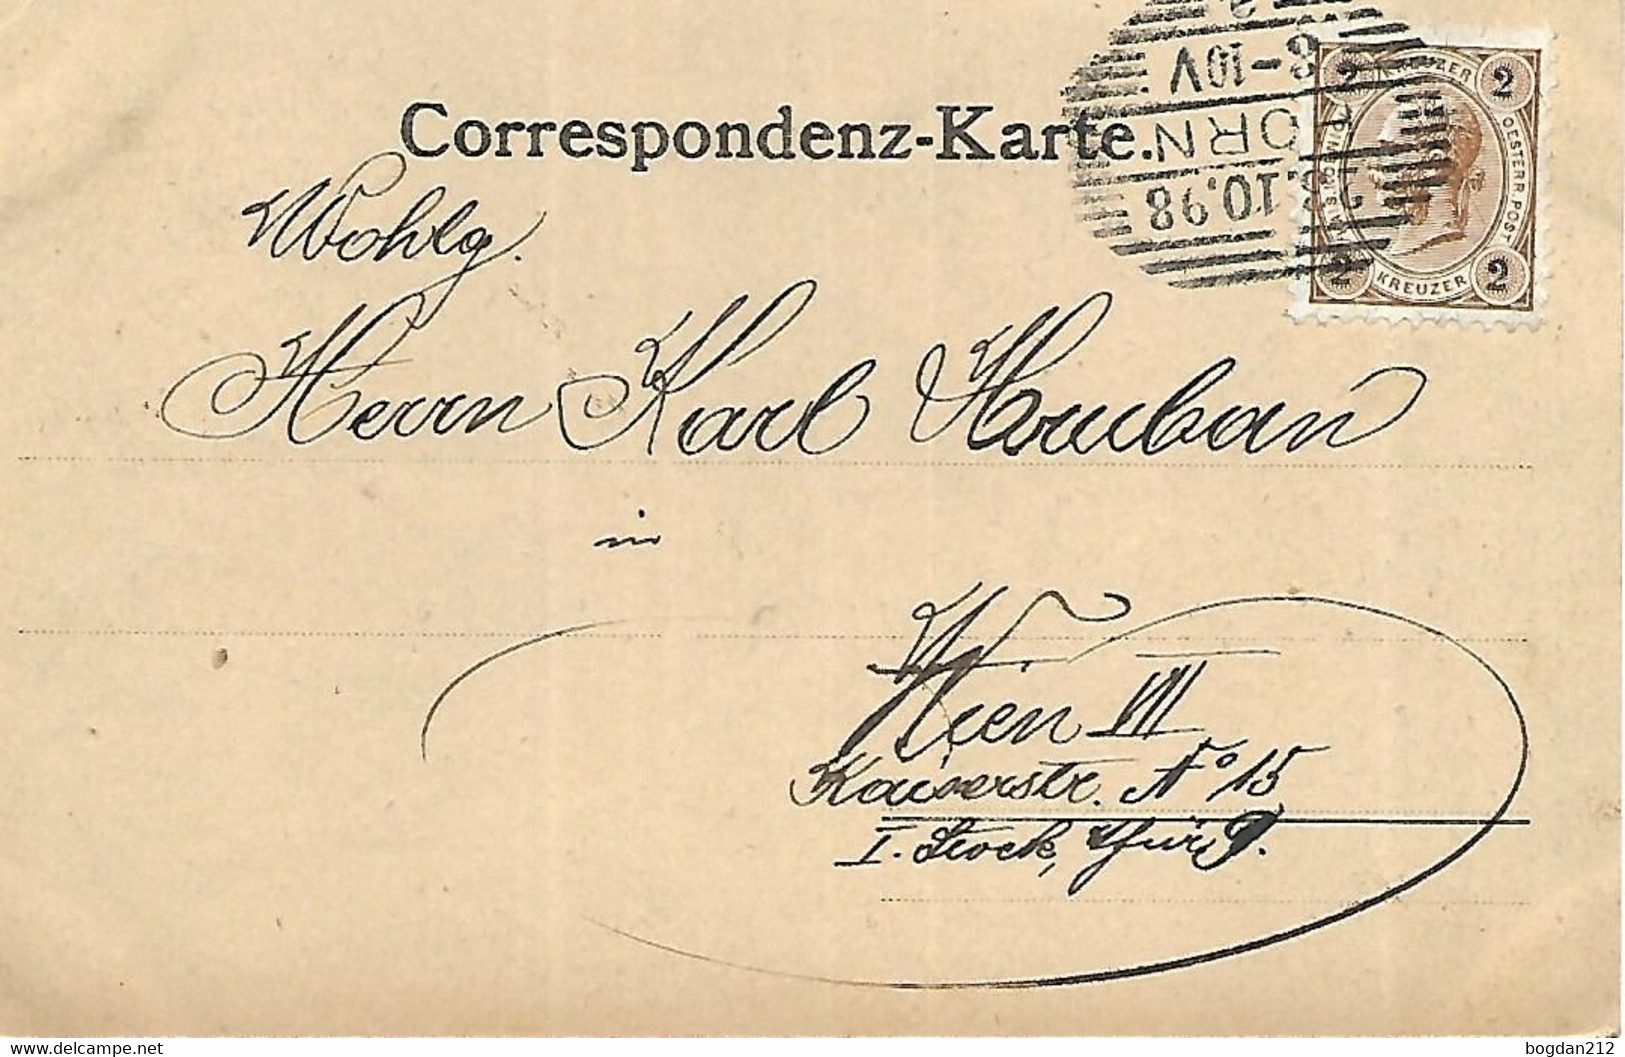 Correspondenz-Karte.
8-10V
HORN
10.98
2 KREUZER 2
OESTERR. POST
2 KREUZER 2
Wohlg.
Herrn Karl Houban
in
Wien VIII
Kaiserstr. No 15
I. Stock, Thür 9.
bogdan212